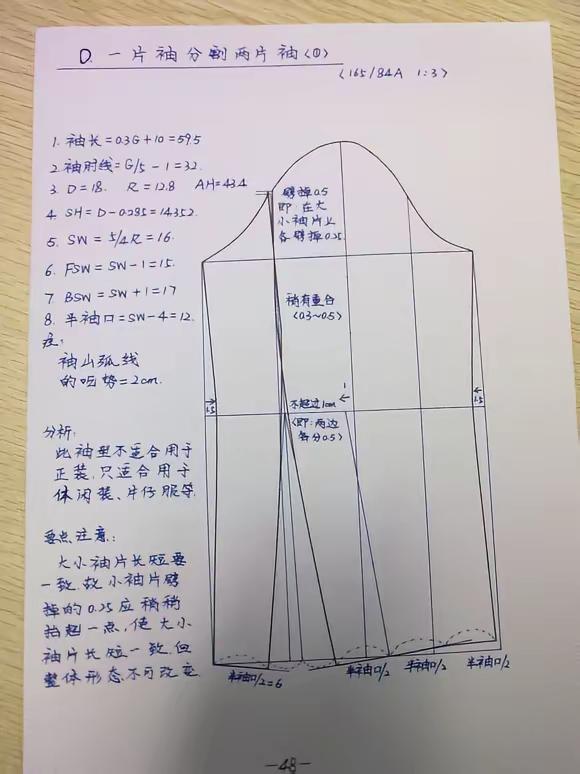 D. 一片袖分割两片袖<①>
<165/84A 1:3>
1. 袖长=0.3G+10=59.5
2. 袖肘线=G/5-1=32.
3. D=18. R=12.8 AH=43.4
4. SH=D-0.285=14.352.
5. SW=5/4R=16.
6. FSW=SW-1=15.
7. BSW=SW+1=17
8. 半袖口=SW-4=12.
注:
袖山弧线
的吃势=2cm.
分析:
此袖型不适合用于
正装,只适合用于
休闲装、牛仔服等.
要点注意:
大小袖片长短要
一致.故小袖片劈
掉的0.25应稍稍
抬起一点,使大小
袖片长短一致.但
整体形态不可改变.
劈掉0.5
即:在大
小袖片上
各劈掉0.25.
稍有重合
<0.3~0.5>
1
不超过1cm
<即:两边
各分0.5>
1.5
1.5
半袖口/2=6
半袖口/2
半袖口/2
半袖口/2
-48-